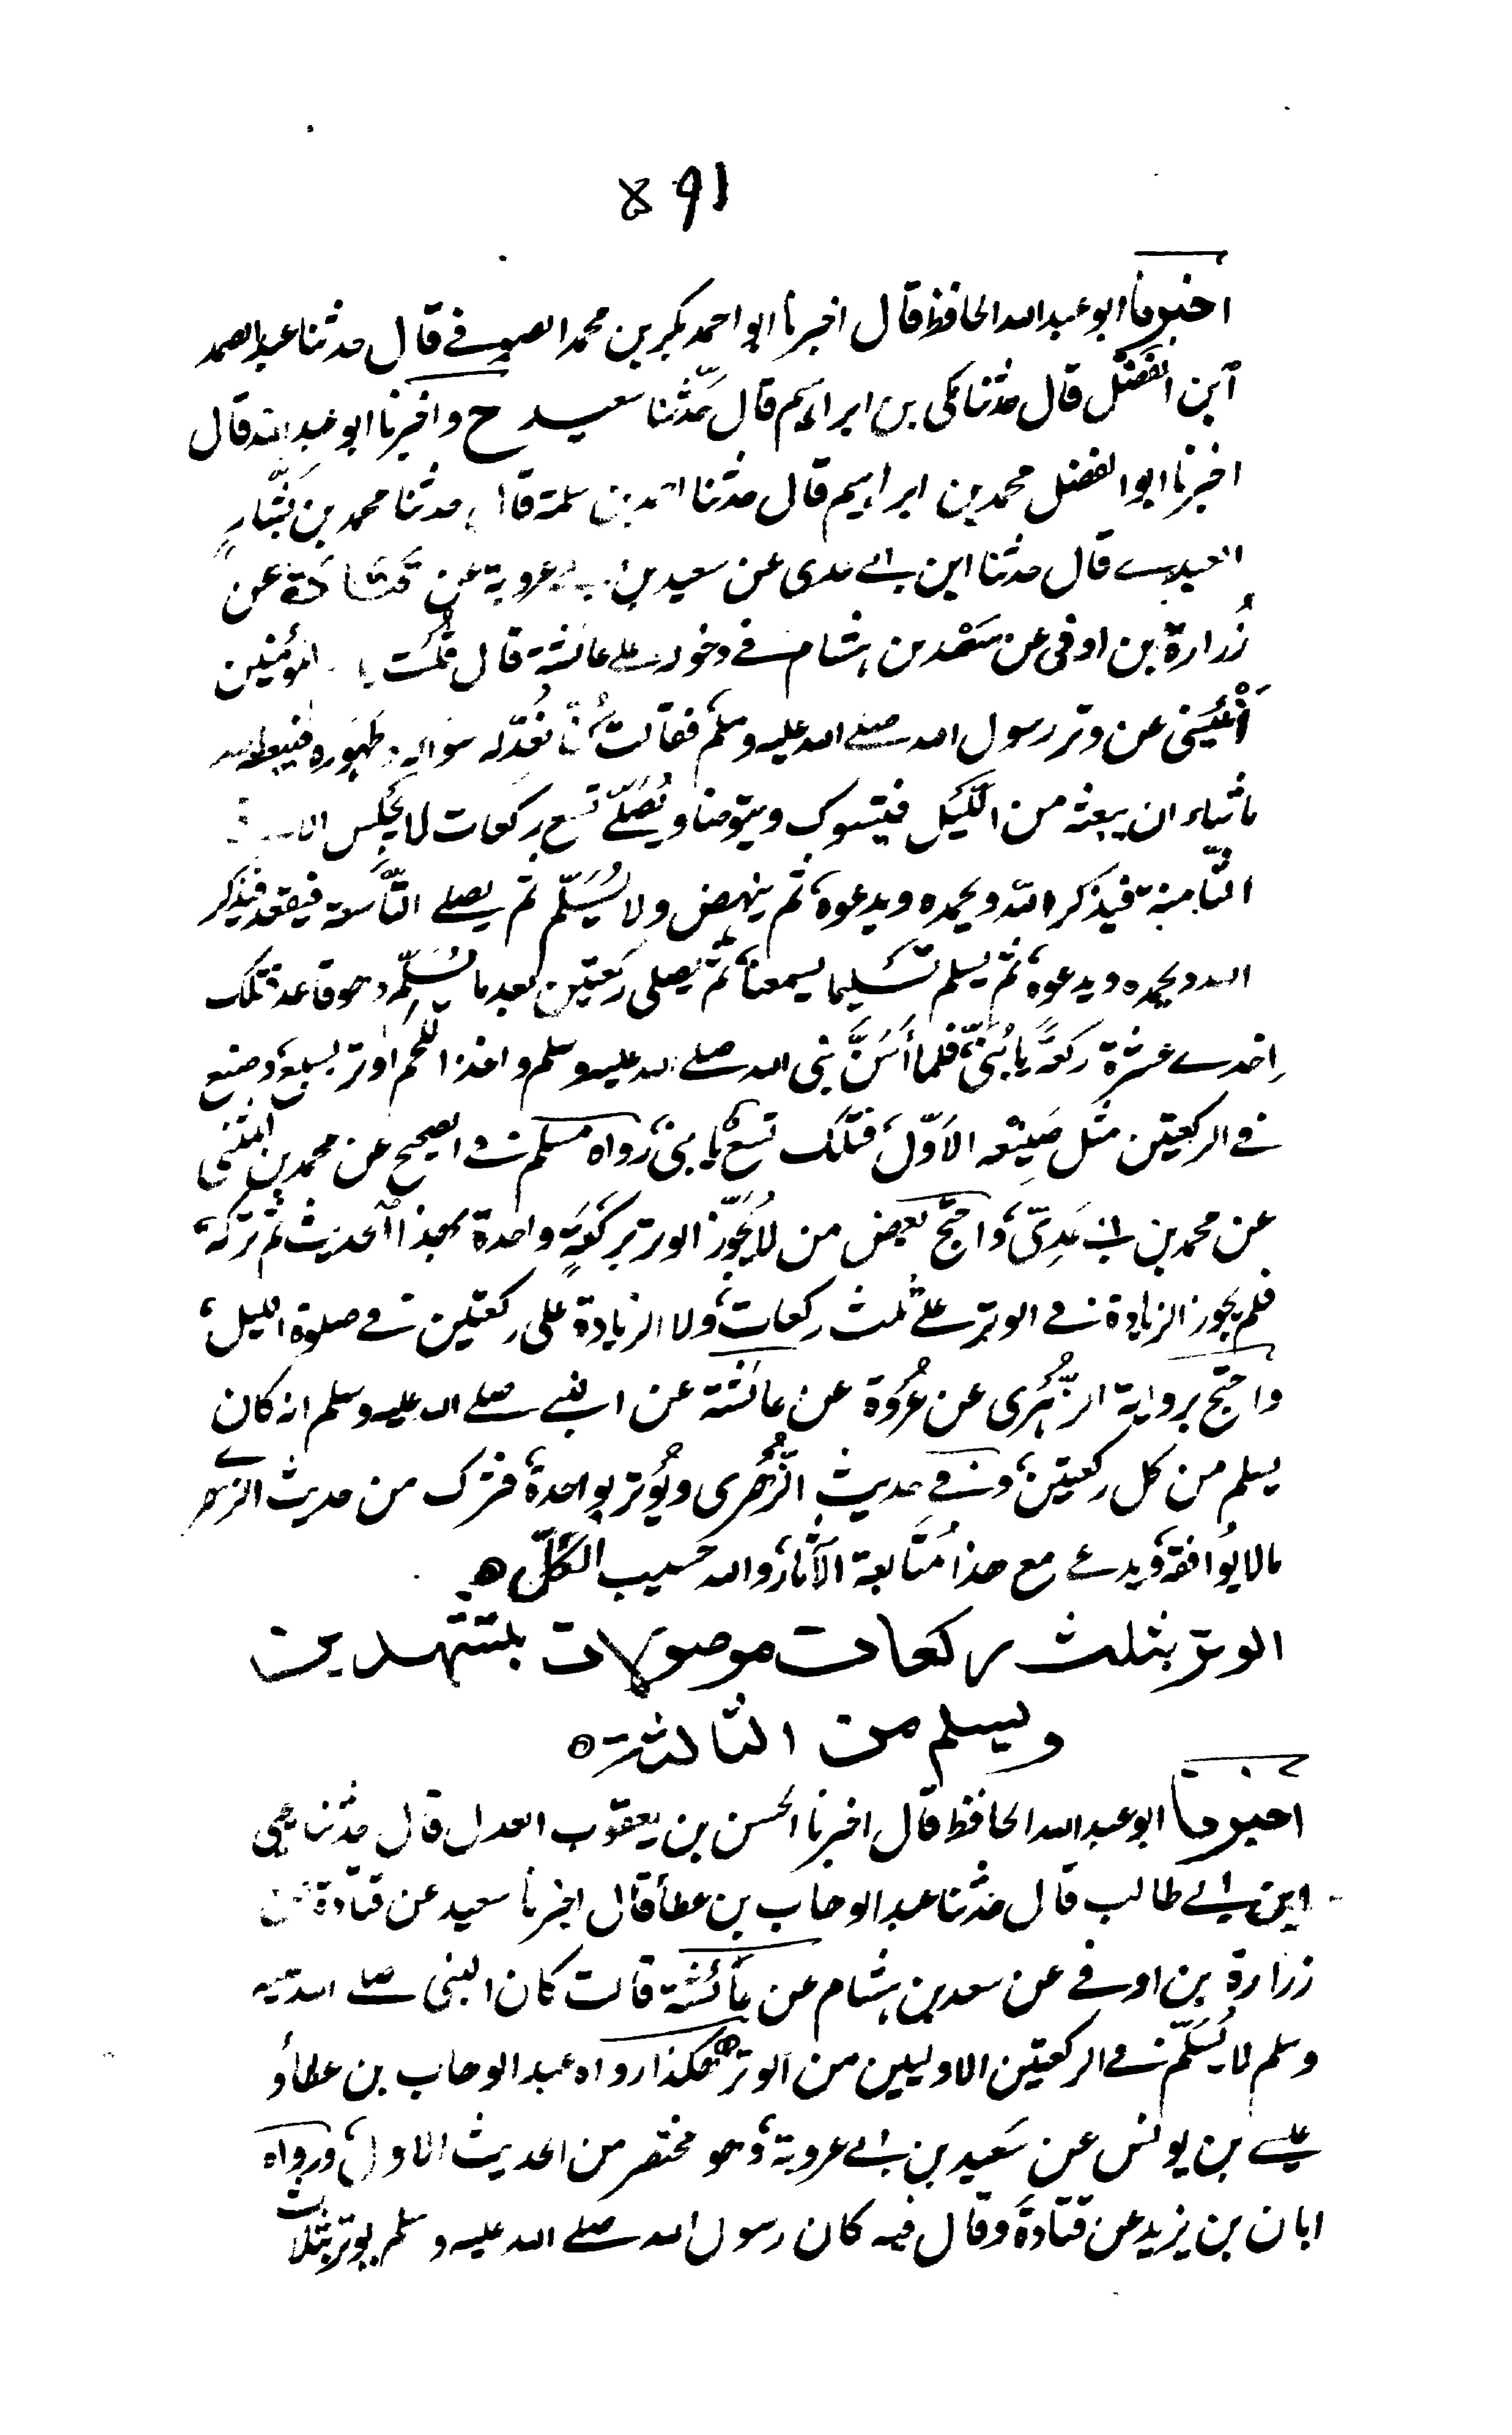 891
اخبرنا ابو عبد الله الحافظ قال اخبرنا ابو احمد بكر بن محمد الصيرفي قال حدثنا عبد الصمد
ابن الفضل قال حدثنا مكى بن ابراهيم قال حدّثنا سعيد ح واخبرنا ابو عبد الله قال
اخبرنا ابو الفضل محمد بن ابراهيم قال حدثنا احمد بن سلمة قال حدثنا محمد بن بَشَّارٍ
العبدي قال حدثنا ابن ابى عدى عن سعيد بن ابى عروبة عن قتادة عن
زُرارة بن اوفى عن سَعْد بن هشام فى دخوله على عائشة قال قُلْتُ يا المؤمنين
أَنْبِئِينى عن وتر رسول الله صلى الله عليه وسلم فقالت كُنّا نُعِدُّ له سواكه وطَهُوره فيبعثه الله
ما شاء ان يبعثه من اللَّيل فيتسوك ويتوضأ ويُصَلّى تسع ركعات لا يجلس الا فى
الثّامنة فيذكر اللهَ ويحمده ويدعوه ثم ينهض ولا يُسَلِّم ثم يصلى التّاسعة فيقعد فيذكر
الله ويحمده ويدعوه ثم يسلم تسليما يسمعنا ثم يصلى ركعتين بعد ما يُسَلِّم وهو قاعد فتلك
إحدى عشرة ركعةً يا بُنَىّ فلما أَسَنَّ نبى الله صلى الله عليه وسلم واخذ اللَّحم اوتر بسبع وصنع
فى الركعتين مثل صَنِيْعه الاَوّل فتلك تسعٌ يا بنى رواه مسلم فى الصحيح عن محمد بن المثنى
عن محمد بن ابى عَدِىّ واحتج بعض من لا يُجَوِّز الوتر بركعةٍ واحدة بهذا الحديث ثم تركه
فلم يجوز الزيادة فى الوتر على ثلث ركعات ولا الزيادة على ركعتين فى صلوة الليل
واحتج برواية الزُّهْرى عن عُرْوَة عن عائشة عن النبى صلى الله عليه وسلم انه كان
يسلم من كل ركعتين وفى حديث الزُّهْرى ويُوتر بواحدة فترك من حديث الزهرى
مالا يُوافقه ويدعى مع هذا مُتابعة الآثار والله حسيب الكُلّ
الوتر بثلث ركعات موصولات بتشهدين
ويسلم من الثالثة
اخبرنا ابو عبد الله الحافظ قال اخبرنا الحسن بن يعقوب العدل قال حدثنا يحيى
ابن ابى طالب قال حدثنا عبد الوهاب بن عطاء قال اخبرنا سعيد عن قتادة عن
زرارة بن اوفى عن سعد بن هشام عن عائشة قالت كان النبى صلى الله عليه
وسلم لا يُسَلِّم فى الركعتين الاوليين من الوتر هكذا رواه عبد الوهاب بن عطاء و
عيسى بن يونس عن سَعِيد بن ابى عروبة وهو مختصر من الحديث الاول ورواه
ابان بن يزيد عن قتادةَ وقال فيه كان رسول الله صلى الله عليه وسلم يوتر بثلاث